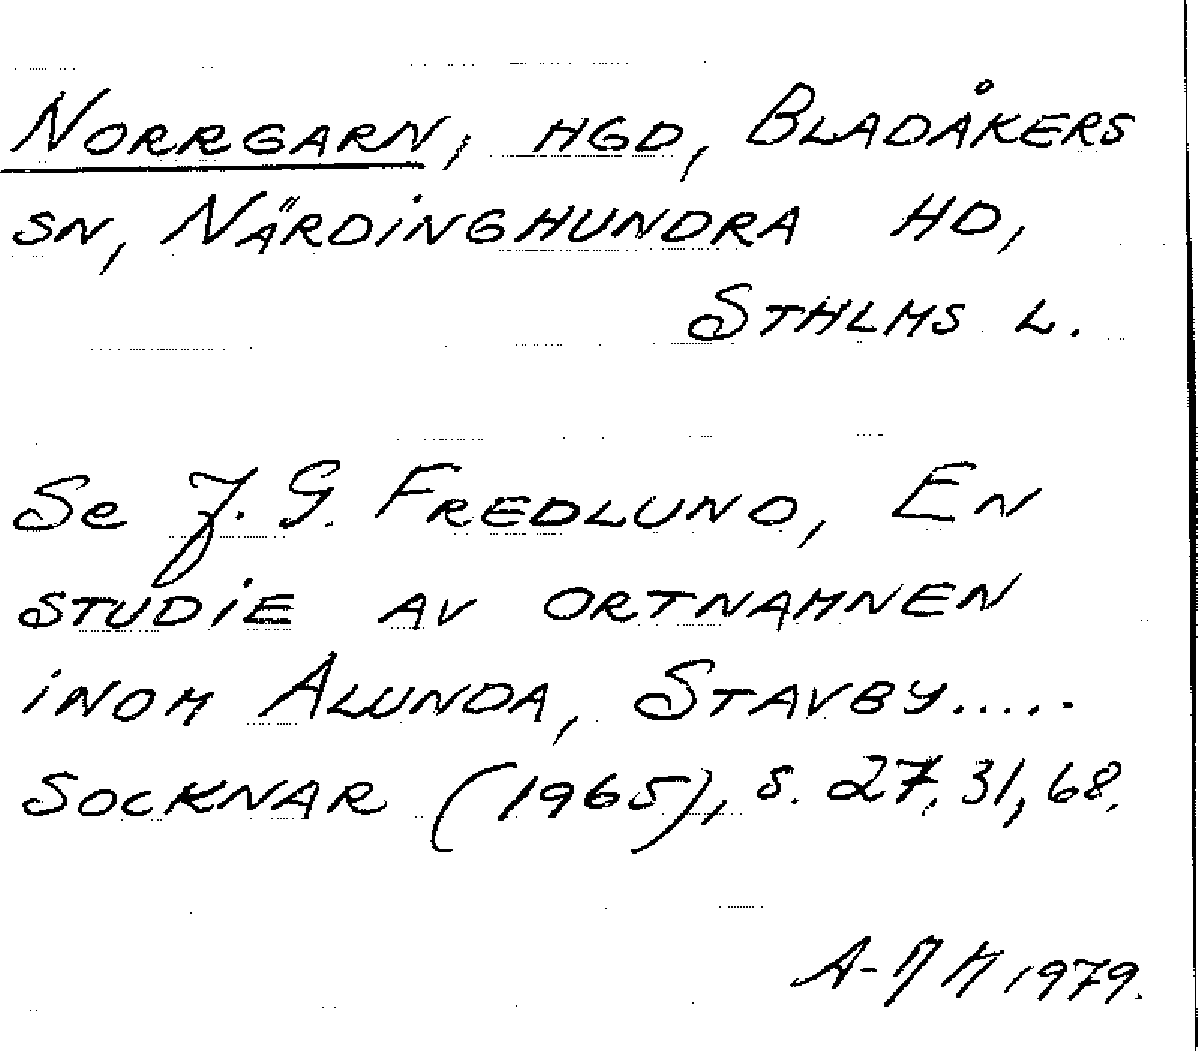 NORRGARN, HGD, BLADÅKERS
SN, NÄRDINGHUNDRA HD,
STHLMS L.
Se J. G. FREDLUND, EN
STUDIE AV ORTNAMNEN
INOM ALUNDA, STAVBY.....
SOCKNAR (1965), S. 27, 31, 68.
A-MM 1979.